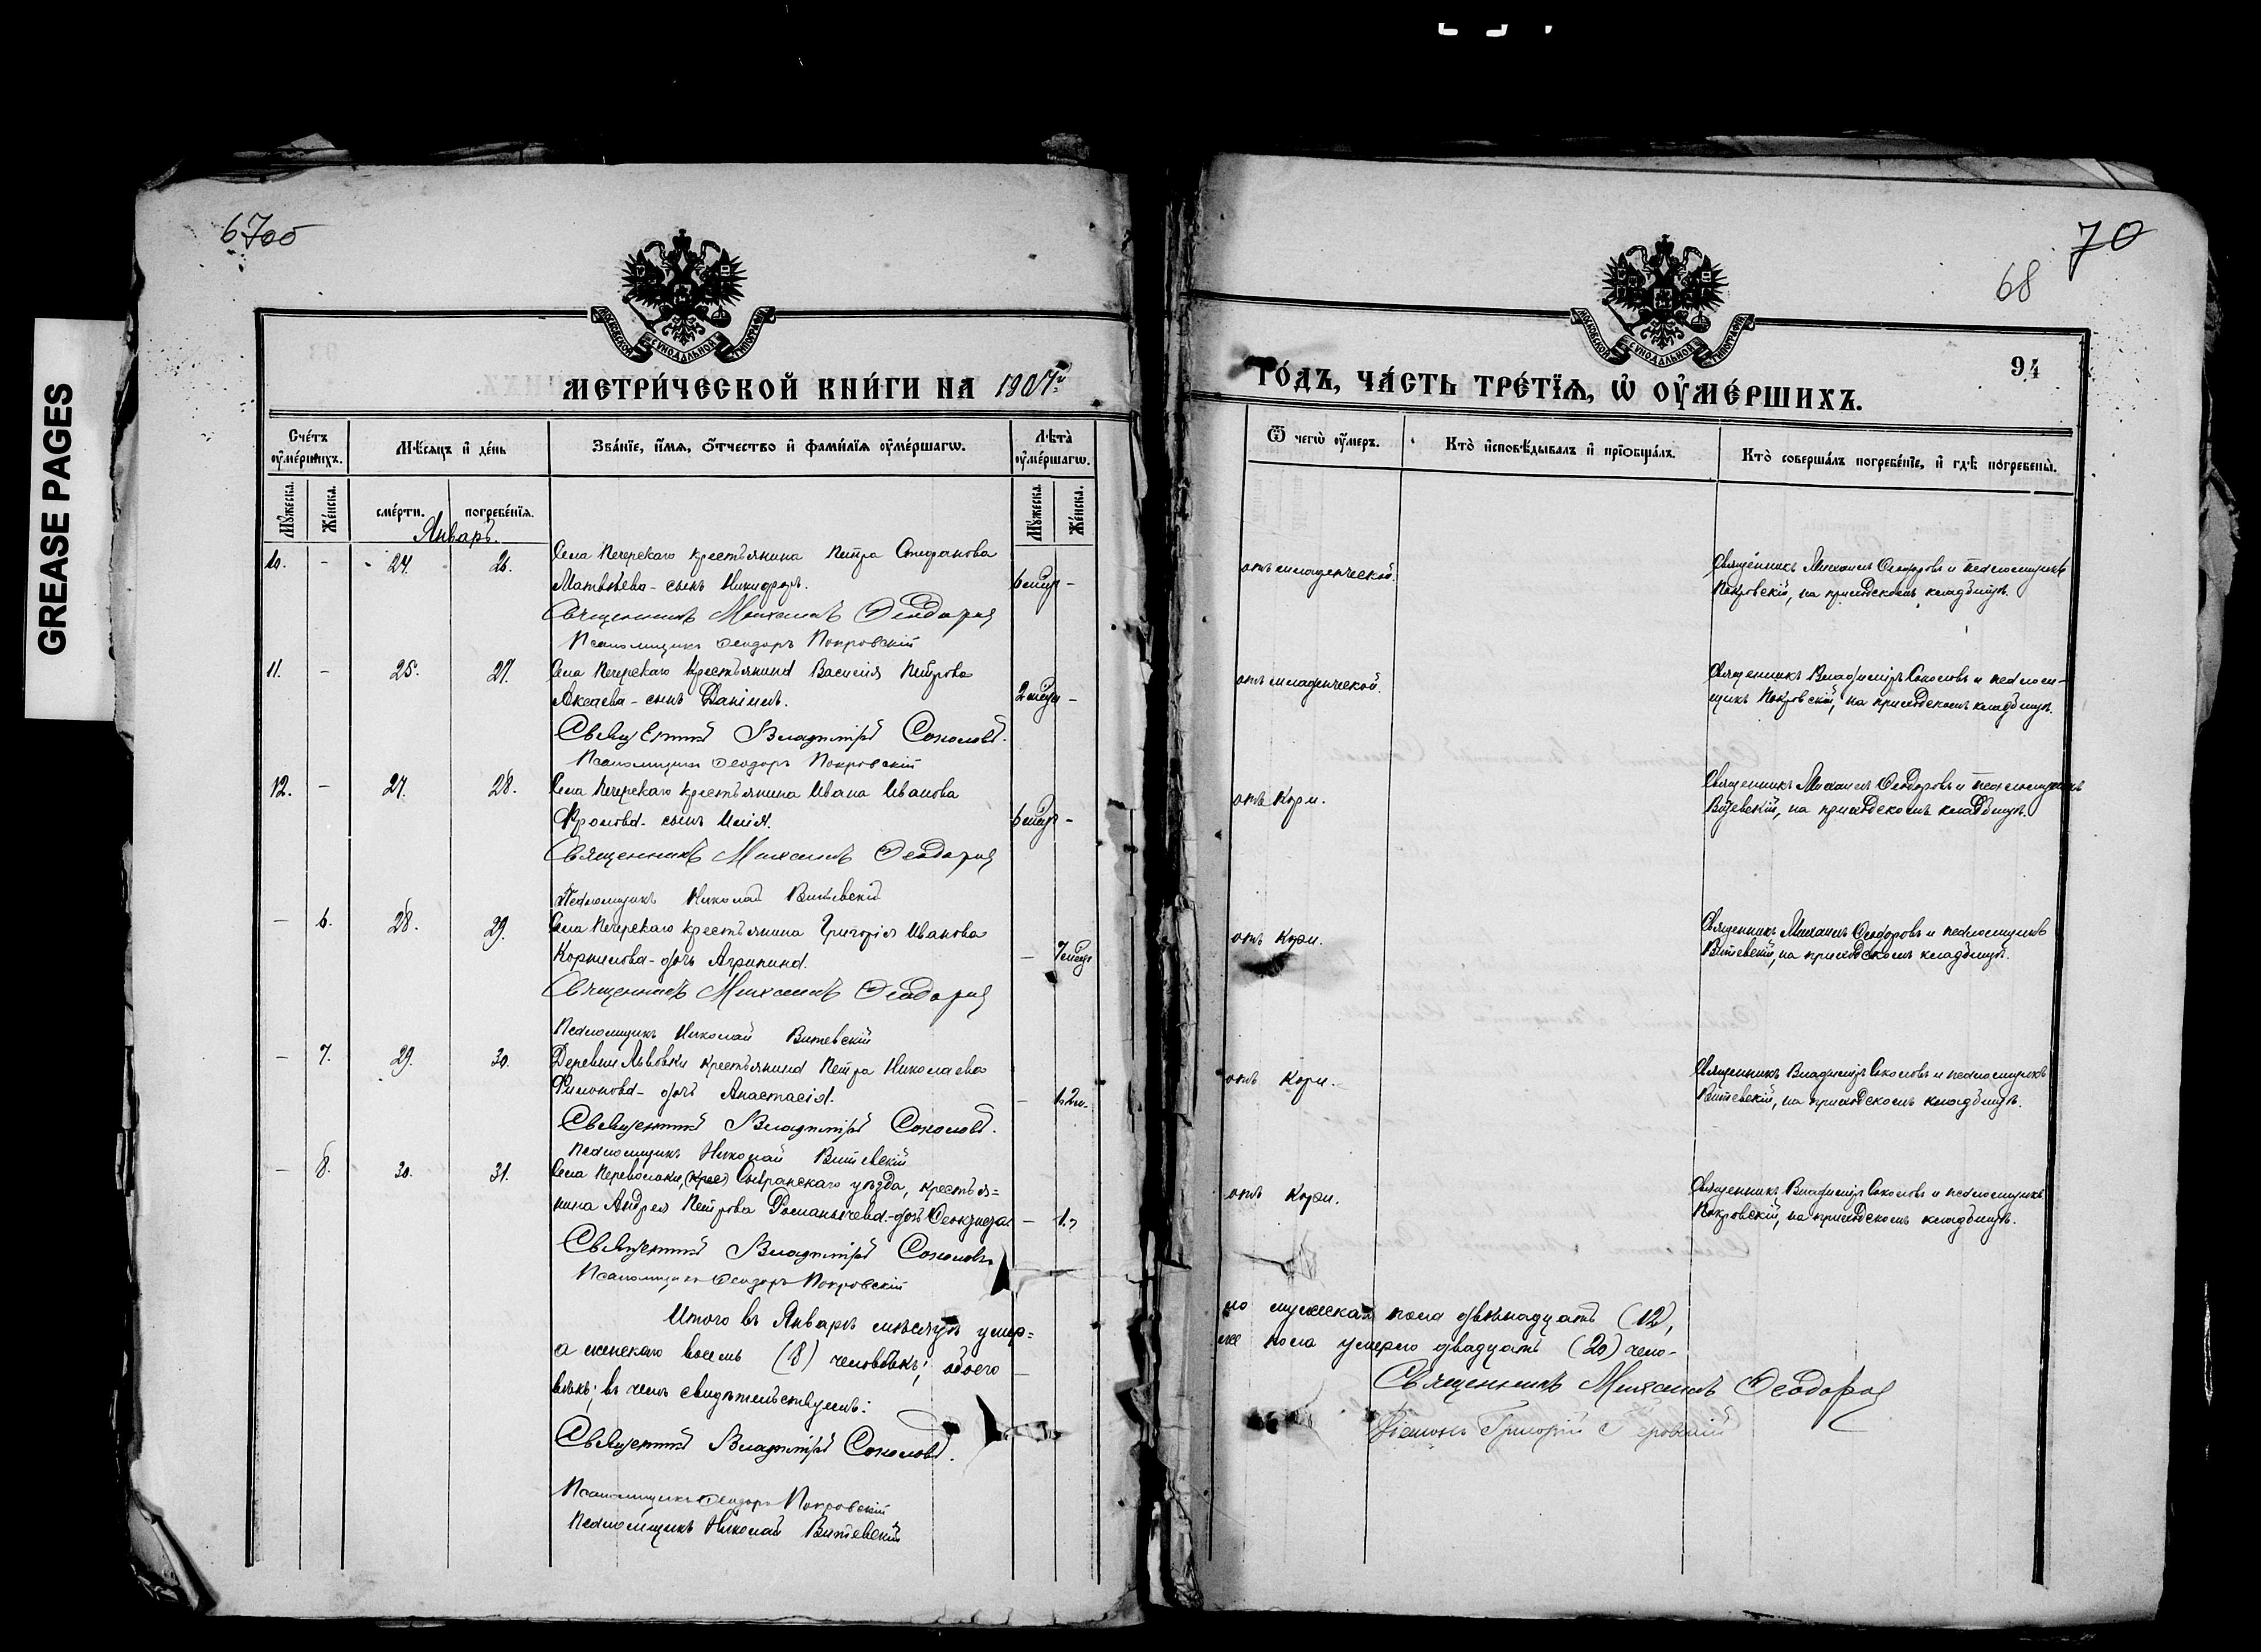 GREASE PAGES
67об
МОСКОВСКОЙ СУНОДАЛЬНОЙ ТИПОГРАФІИ
МЕТРИ́ЧЕСКОЙ КНИ́ГИ НА 1907й
Сче́тъ ᲂу҆ме́ршихъ.
Мѣ́сяцъ и҆ де́нь
Зва́нїе, и҆́мѧ, ѻ҆́тчество и҆ фами́лїѧ ᲂу҆ме́ршагѡ.
Лѣ́та ᲂу҆ме́ршагѡ.
Мꙋ́жеска. Же́нска.
сме́рти. погребе́нїѧ.
Мꙋ́жеска. Же́нска.
Январь.
10. - 24. 26. Села Печерскаго крестьянина Петра Стефанова
Матвѣева - сынъ Никифоръ. 6 мѣсяц -
Священникъ Михаилъ Ѳеодоровъ
Псаломщикъ Ѳеодоръ Покровскій
11. - 25. 27. Села Печерскаго крестьянина Василія Петрова
Аксаева - сынъ Даніилъ. 2 мѣсяц -
Священникъ Владиміръ Соколовъ.
Псаломщикъ Ѳеодоръ Покровскій
12. - 27. 28. Села Печерскаго крестьянина Ивана Иванова
Фролова - сынъ Илія. 6 мѣсяц -
Священникъ Михаилъ Ѳеодоровъ
Псаломщикъ Николай Витевскій
- 6. 28. 29. Села Печерскаго крестьянина Григорія Иванова
Корнилова - дочь Агрипина. - 7 мѣсяц
Священникъ Михаилъ Ѳеодоровъ
Псаломщикъ Николай Витевскій
- 7. 29. 30. Деревни Львовки крестьянина Петра Николаева
Филонова - дочь Анастасія. -
Священникъ Владиміръ Соколовъ.
Псаломщикъ Николай Витевскій
- 8. 30. 31. Села Переволоки, (крес) Сызранскаго уѣзда, крестья=
нина Андрея Петрова - дочь - 1.
Священникъ Владиміръ Соколовъ
Псаломщикъ Ѳеодоръ Покровскій
Итого въ Январѣ мѣсяцѣ умер=
а женскаго восемь (8) человѣкъ; обоего
вѣкъ; въ чемъ свидѣтельствуемъ:
Священникъ Владиміръ Соколовъ.
Псаломщикъ Ѳеодоръ Покровскій
Псаломщикъ Николай Витевскій
70
68
МОСКОВСКОЙ СУНОДАЛЬНОЙ ТИПОГРАФІИ
94
ГО́ДЪ, ЧА́СТЬ ТРЕ́ТЇѦ, Ѡ҆ ОУ҆МЕ́РШИХЪ.
Ѿ чегѡ̀ ᲂу҆́меръ.
Кто̀ и҆сповѣ́дывалъ и҆ прїѡбща́лъ.
Кто̀ соверша́лъ погребе́нїе, и҆ гдѣ̀ погребены̀.
отъ младенческой. Священникъ Михаилъ Ѳеодоровъ и псаломщикъ
Покровскій, на приходскомъ кладбищѣ.
отъ младенческой. Священникъ Владиміръ Соколовъ и псалом-
щикъ Покровскій, на приходскомъ кладбищѣ.
отъ Кори. Священникъ Михаилъ Ѳеодоровъ и псаломщикъ
Витевскій, на приходскомъ кладбищѣ.
отъ Кори. Священникъ Михаилъ Ѳеодоровъ и псаломщикъ
Витевскій, на приходскомъ кладбищѣ.
отъ Кори. Священникъ Владиміръ Соколовъ и псаломщикъ
Витевскій, на приходскомъ кладбищѣ.
отъ Кори. Священникъ Владиміръ Соколовъ и псаломщикъ
Покровскій, на приходскомъ кладбищѣ.
ло мужскаго пола двѣнадцать (12),
же пола умерло двадцать (20) чело-
Священникъ Михаилъ Ѳеодоровъ
Діаконъ Григорій